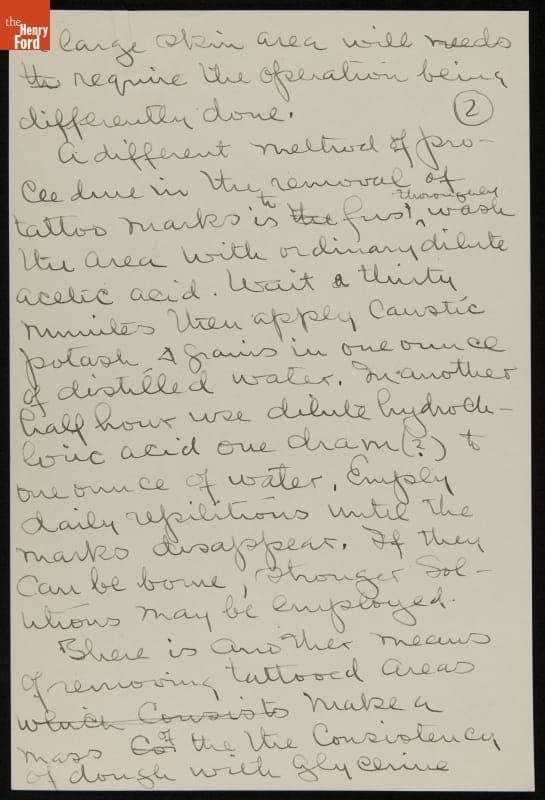 the
Henry
Ford
large skin area will needs
th require the operation being
differently done. 2
A different method of pro-
cedure in the removal of
tattoo marks is to the first thoroughly wash
the area with ordinary dilute
acetic acid. Wait a thirty
minutes then apply caustic
potash 4 grains in one ounce
of distilled water. In another
half hour use dilute hydroch-
loric acid one dram (?) to
one ounce of water. Employ
daily repititions until the
marks disappear. If they
can be borne, stronger sol-
utions may be employed.
There is another means
of removing tattooed areas
which consists make a
mass of the the consistency
of dough with glycerine